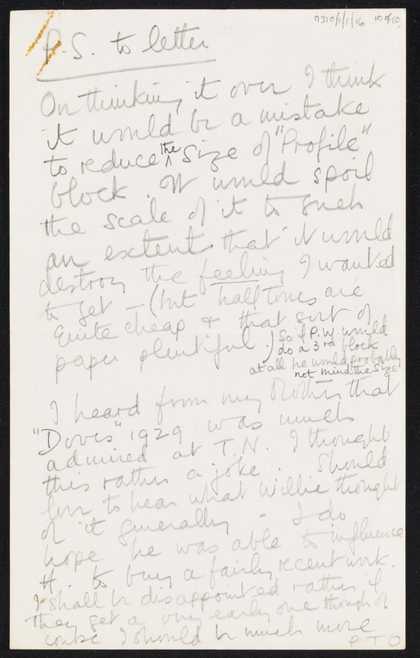 7310/1/1/16 10 of 10
P.S. to letter
On thinking it over I think
it would be a mistake
to reduce the size of "Profile"
block. It would spoil
the scale of it to such
an extent that it would
destroy the feeling I wanted
to get – (but half tones are
quite cheap & that sort of
paper plentiful.) So if P.W. would
do a 3rd block
at all he would probably
not mind the size!
I heard from my Mother that
"Doves" 1929 was much
admired at T.N. I thought
this rather a joke. Should
love to hear what Willie thought
of it generally – I do
hope he was able to influence
H. to buy a fairly recent work.
I shall be disappointed rather if
they get a very early one though of
course I should be much more
P T O